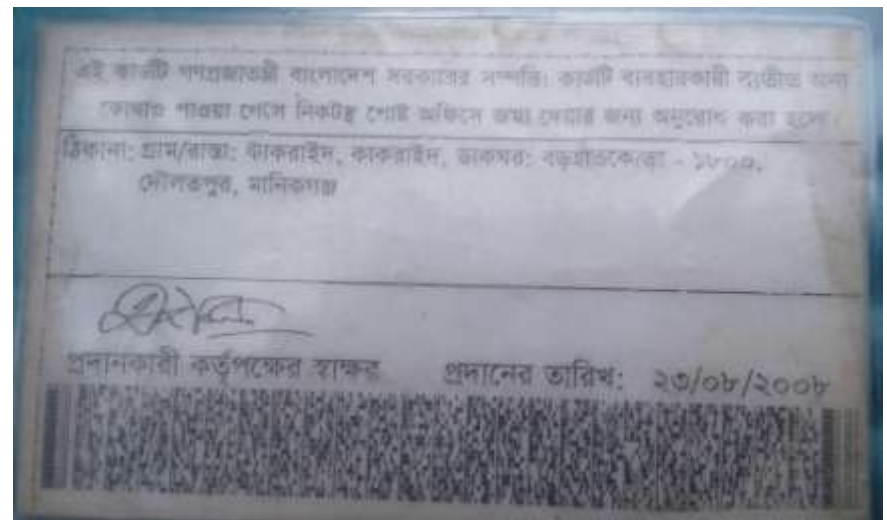 এই কার্ডটি গণপ্রজাতন্ত্রী বাংলাদেশ সরকারের সম্পত্তি। কার্ডটি ব্যবহারকারী ব্যতীত অন্য
কোথাও পাওয়া গেলে নিকটস্থ পোষ্ট অফিসে জমা দেয়ার জন্য অনুরোধ করা হলো।
ঠিকানা: গ্রাম/রাস্তা: কাকরাইদ, কাকরাইদ, ডাকঘর: - ১৮০০,
দৌলতপুর, মানিকগঞ্জ
প্রদানকারী কর্তৃপক্ষের স্বাক্ষর প্রদানের তারিখ: ২৩/০৮/২০০৮